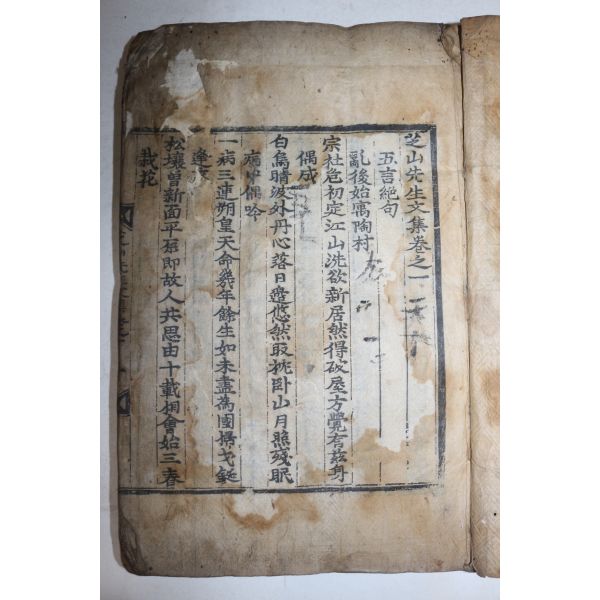 芝山先生文集卷之一
五言絶句
亂後始寓陶村
宗社危初定江山洗欲新居然得破屋方覺有玆身
偶成
白鳥晴波外丹心落日邊悠然取枕卧山月照殘眠
病中偶吟
一病三連朔皇天命幾年餘生如未盡爲國橾戈鋋
逢
松壤曾新面平原即故人共思由十載相會始三春
栽花